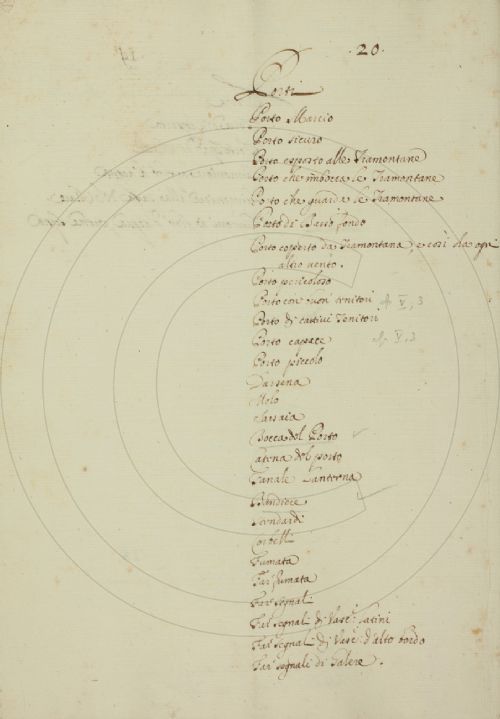 .20.
Porti
Porto Marcio
Porto sicuro
Porto esposto alle Tramontane
Porto che imbocca le Tramontane
Porto che guarda le Tramontane
Porto di Basso fondo
Porto coperto da Tramontana, e così da ogni
altro vento.
Porto pericoloso
Porto con buoni tenitori V, 3
Porto di cattivi Tenitori
Porto capace V, 3
Porto piccolo
Darsena
Molo
Bocca del Porto
Catena del porto
Fanale Lanterna
Bandiere
Stendardi
Corbelli
Fumata
Far fumata
Far segnali
Far segnali di Vasc. Latini
Far segnali di Vasc. d'alto bordo
Far segnali di Galere.